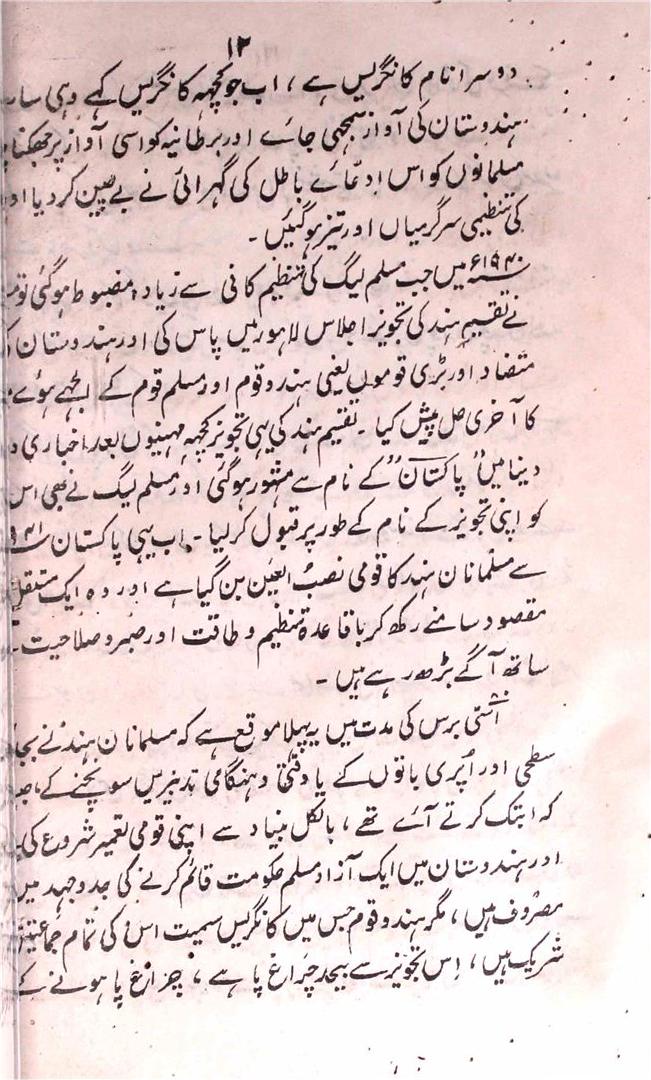 ۱۲
دوسرا نام کانگریس ہے ، اب جو کچھہ کانگریس کہے وہی سا
ہندوستان کی آواز سمجھی جاے اور برطانیہ کو اسی آواز پر جھکنا
مسلمانوں کو اس ادعاے باطل کی گہرائی نے بے چین کر دیا او
کی تنظیمی سرگرمیاں اور تیز ہوگئیں ۔
۱۹۴۰ء میں جب مسلم لیگ کی تنظیم کافی سے زیادہ مضبوط ہوگئی تو
نے تقسیم ہند کی تجویز اجلاس لاہور میں پاس کی اور ہندوستان
متضاد اور بڑی قوموں یعنی ہندو قوم اور مسلم قوم کے الجھے ہوے
کا آخری حل پیش کیا ۔ تقسیم ہند کی یہی تجویز کچھہ مہینوں بعد اخباری
دینا میں "پاکستان" کے نام سے مشہور ہوگئی اور مسلم لیگ نے بھی اس
کو اپنی تجویز کے نام کے طور پر قبول کرلیا ۔ اب یہی پاکستان
سے مسلمانان ہند کا قومی نصبُ العین بن گیا ہے اور وہ ایک مستقل
مقصود سامنے رکھ کر باقاعدہ تنظیم و طاقت اور صبر و صلاحیت
ساتھ آگے بڑھ رہے ہیں ۔
اسّی برس کی مدت میں یہ پہلا موقع ہے کہ مسلمانان ہند نے بجا
سطحی اور اُپری باتوں کے یا وقتی و ہنگامی تدبیریں سوچنے کے،
کہ ابتک کرتے آے تھے ، بالکل بنیاد سے اپنی قومی تعمیر شروع کی
اور ہندوستان میں ایک آزاد مسلم حکومت قائم کرنے کی جدوجہد میں
مصرُوف ہیں ، مگر ہندو قوم جس میں کانگریس سمیت اس کی تمام جماعتیں
شریک ہیں ، اِس تجویز سے بیحد چراغ پا ہے ، چراغ پا ہونے کے